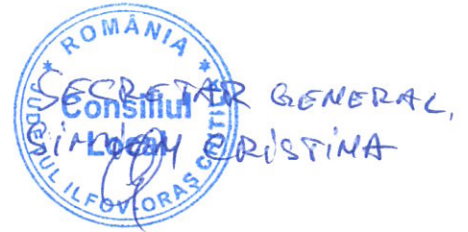 ROMÂNIA
JUDEȚUL ILFOV-ORAȘ
Consiliul
Local
SECRETAR GENERAL,
CRISTINA